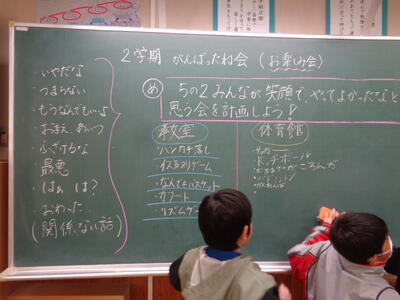 2学期 がんばったね会(お楽しみ会)
め 5の2みんなが笑顔で、やってよかったなと
思う会を計画しよう!
・いやだな
・つまらない
・もうなんでもいいよ
・おまえ、あいつ
・ふざけるな
・最悪
・はぁ は?
・おわった
(関係ない話)
教室
・ハンカチ落し
・イス取りゲーム
・なんでもバスケット
・カフート
・リズムゲーム
体育館
・ドッチボール